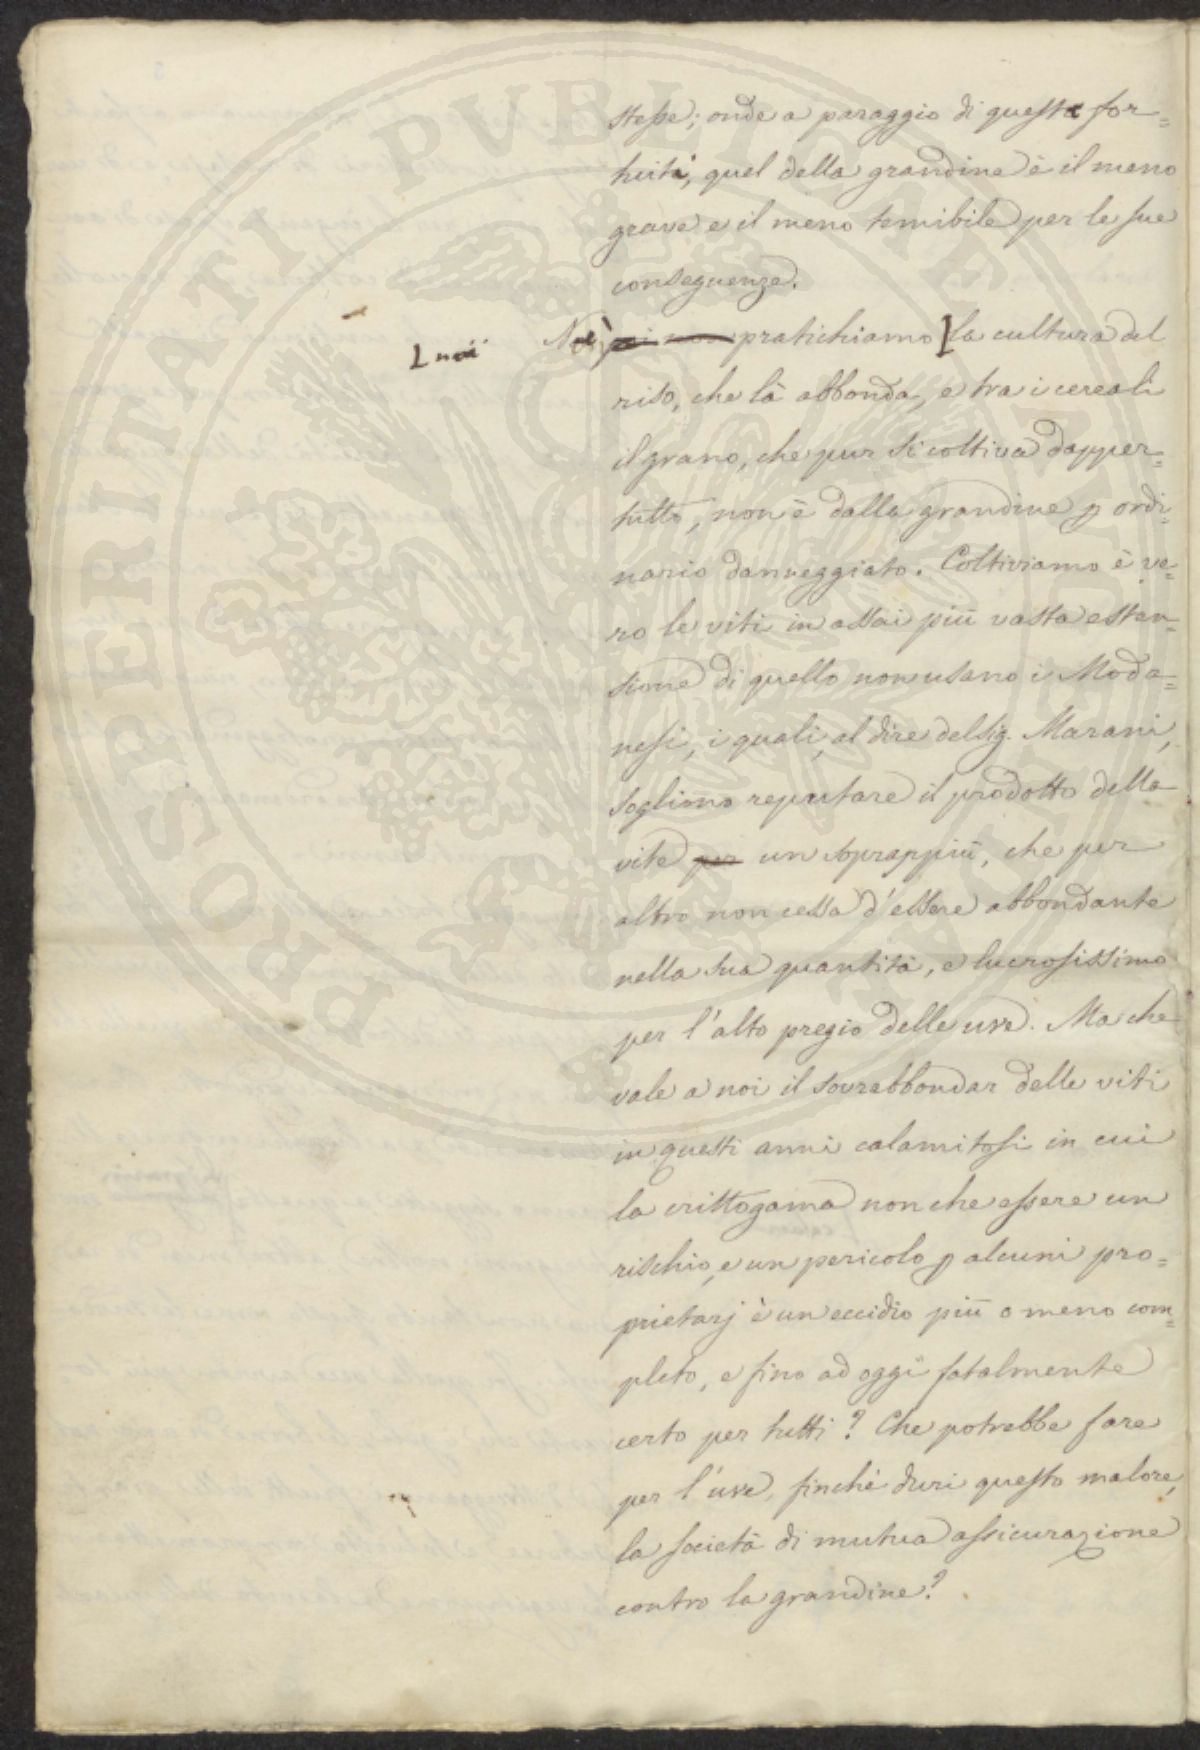 PROSPERITATI PVBLICAE AVGENDAE
stesse; onde a paraggio di queste for=
tuiti, quel della grandine è il meno
grave e il meno temibile per le sue
conseguenze.
Nè, poi non pratichiamo [la cultura del
[noi
riso, che là abbonda, e tra i cereali
il grano, che pur si coltiva dapper=
tutto, non è dalla grandine p ordi=
nario danneggiato. Coltiviamo è ve=
ro le viti in assai più vasta esten=
sione di quello non usano i Moda=
nesi, i quali, al dire del sig. Marani,
sogliono reputare il prodotto della
vite per un soprappiù, che per
altro non cessa d'essere abbondante
nella sua quantità, e lucrosissimo
per l'alto pregio delle uve. Ma che
vale a noi il sovrabbondar delle viti
in questi anni calamitosi in cui
la crittogama non che essere un
rischio, e un pericolo p alcuni pro=
prietarj è un eccidio più o meno com=
pleto, e fino ad oggi fatalmente
certo per tutti? Che potrebbe fare
per l'uve, finchè duri questo malore,
la società di mutua assicurazione
contro la grandine?